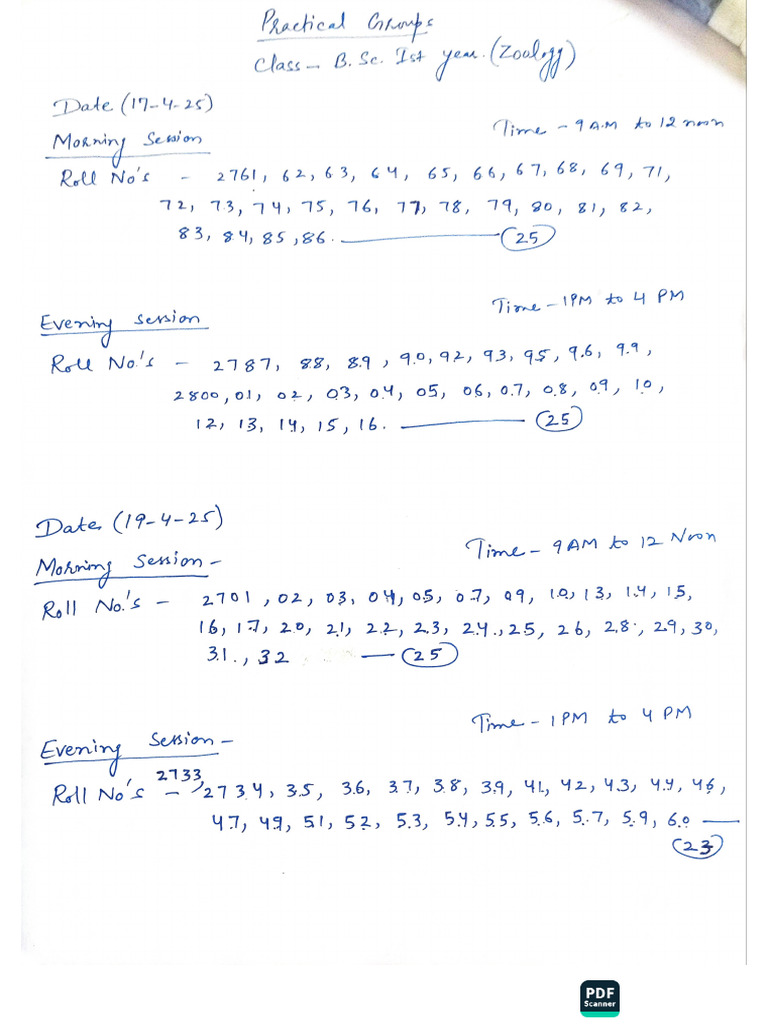 Practical Groups
Class - B. Sc. Ist year. (Zoology)
Date (17-4-25)
Morning Session
Time - 9 A.M to 12 noon
Roll No's - 2761, 62, 63, 64, 65, 66, 67, 68, 69, 71,
72, 73, 74, 75, 76, 77, 78, 79, 80, 81, 82,
83, 84, 85, 86. (25)
Time - 1PM to 4 PM
Evening session
Roll No.'s - 2787, 88, 89, 90, 92, 93, 95, 96, 99,
2800, 01, 02, 03, 04, 05, 06, 07, 08, 09, 10,
12, 13, 14, 15, 16. (25)
Date (19-4-25)
Time - 9 AM to 12 Noon
Morning Session -
Roll No.'s - 2701, 02, 03, 04, 05, 07, 09, 10, 13, 14, 15,
16, 17, 20, 21, 22, 23, 24, 25, 26, 28, 29, 30,
31, 32 — (25)
Time - 1 PM to 4 PM
Evening Session -
Roll No's - 2733, 2734, 35, 36, 37, 38, 39, 41, 42, 43, 44, 46,
47, 49, 51, 52, 53, 54, 55, 56, 57, 59, 60 —
(23)
PDF
Scanner